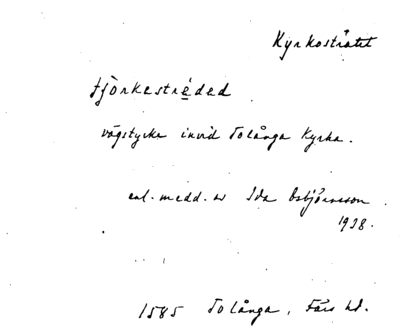 Kyrkosträtet
tjörkesträded
vägstycke invid Tolånga Kyrka.
enl. medd. av Ida Esbjörnsson
1938.
1585 Tolånga, Färs hd.